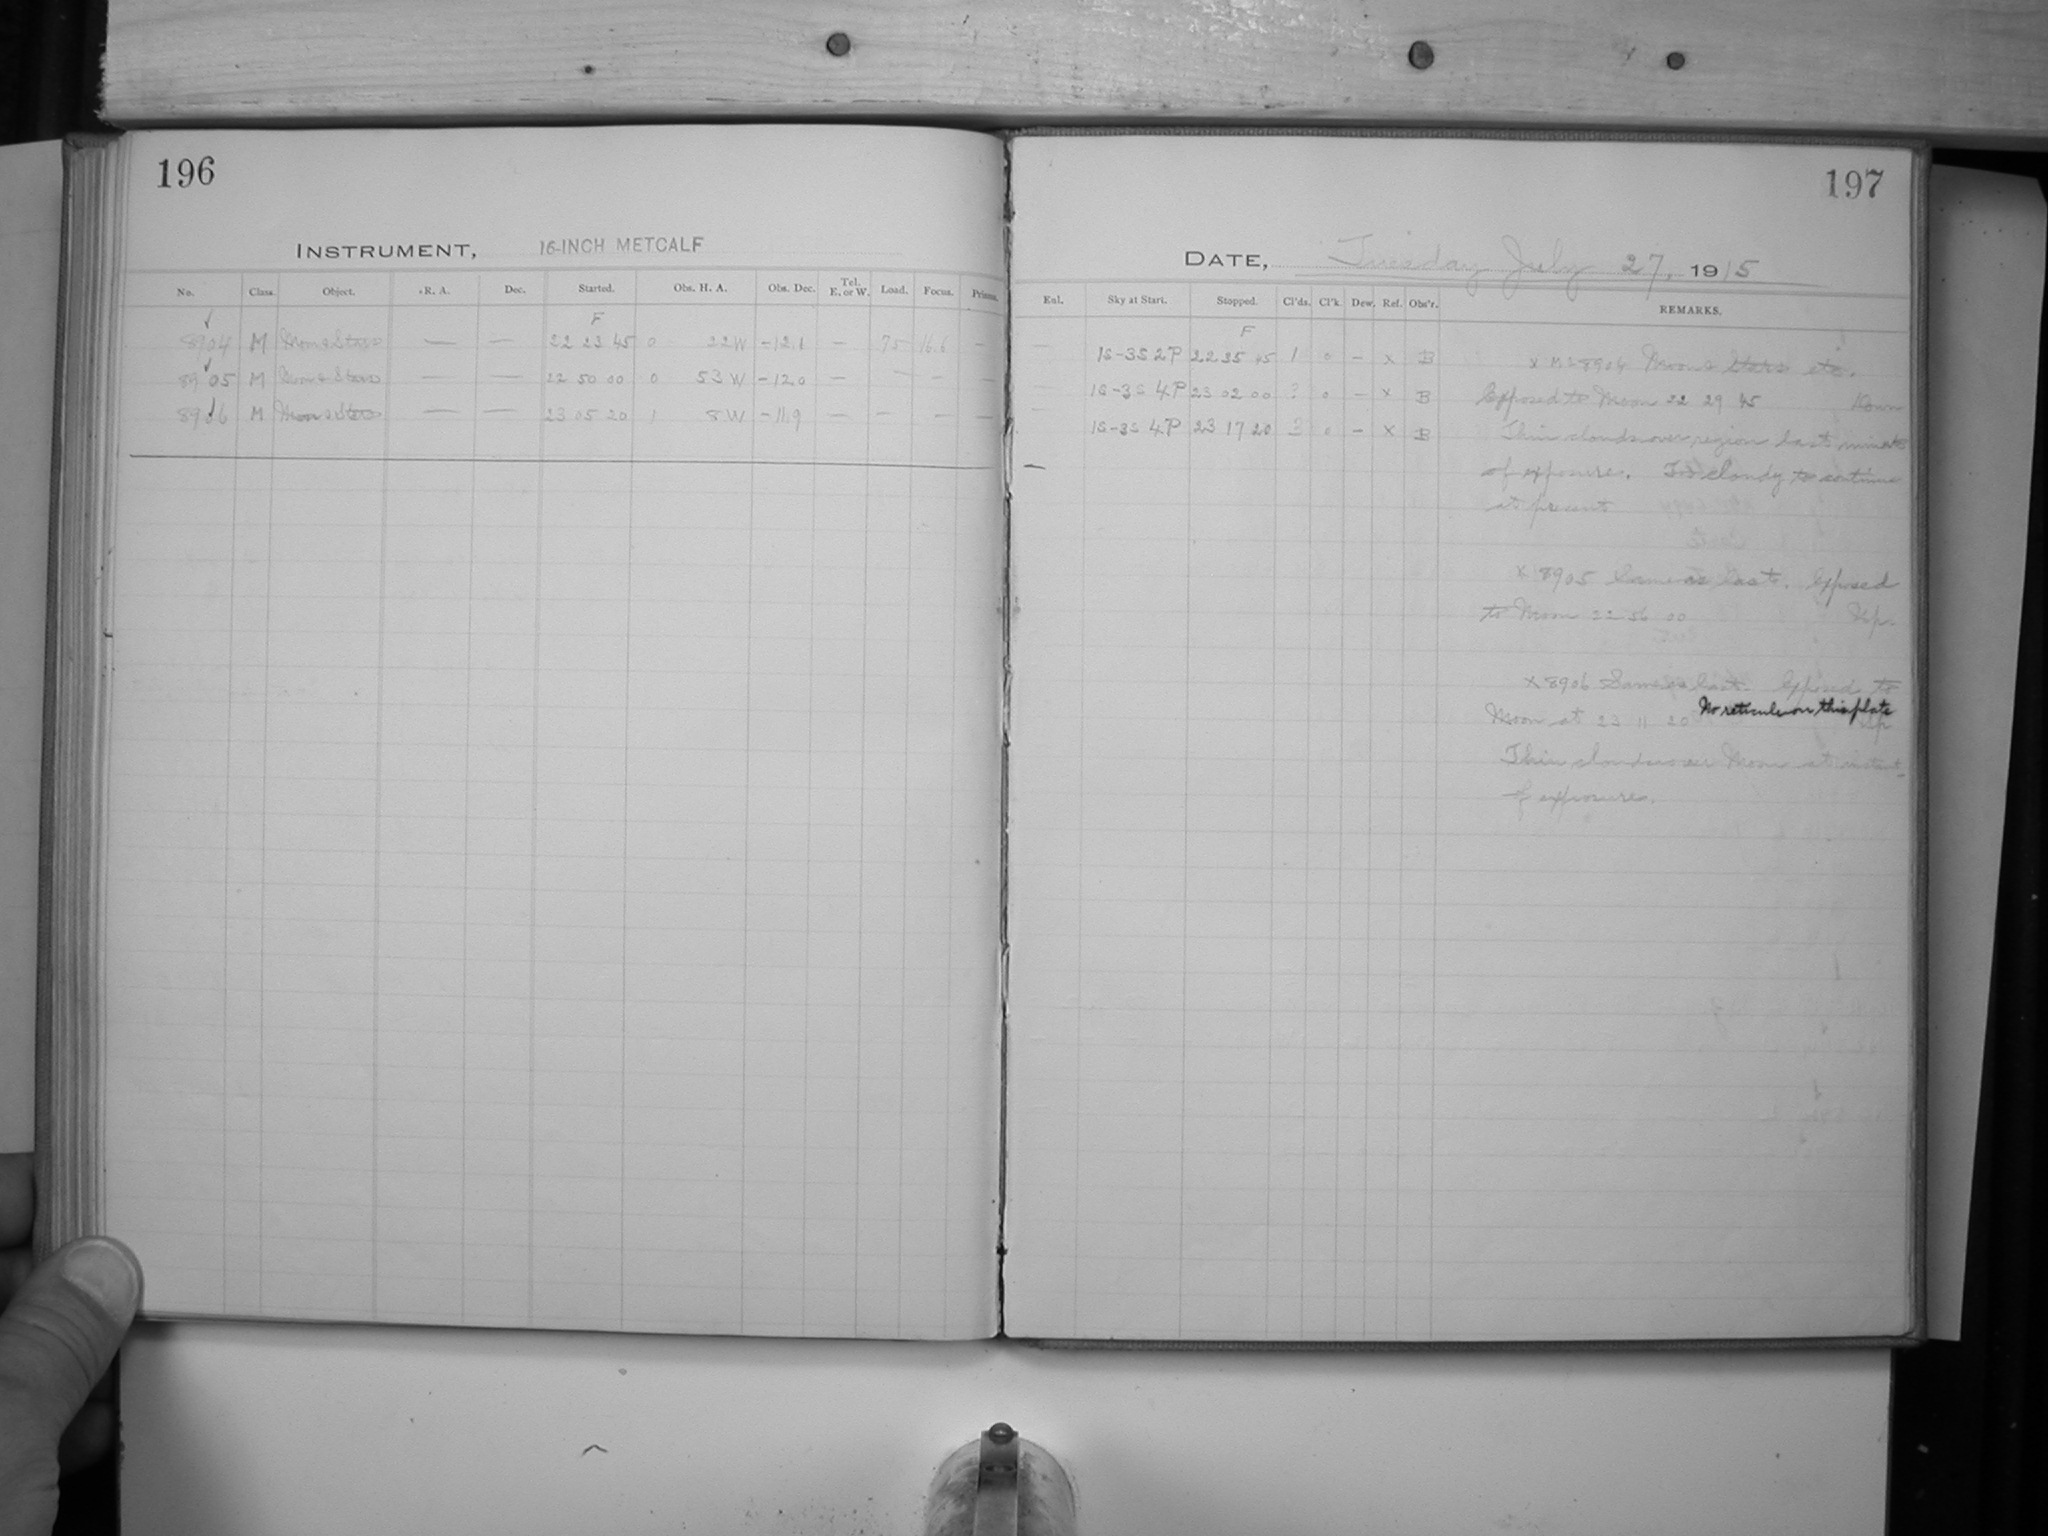 196
INSTRUMENT, 16-INCH METCALF
No. Class. Object. R. A. Dec. Started. Obs. H. A. Obs. Dec. Tel. E. or W. Load. Focus. Prisms.
F
8904 M Moon & Stars — — 22 23 45 0 22 W -12.1 — 75 16.6 —
8905 M Moon & Stars — — 22 50 00 0 53 W -12.0 — — — —
8906 M Moon & Stars — — 23 05 20 1 8 W -11.9 — — — —
197
DATE, Tuesday July 27, 1915
Enl. Sky at Start. Stopped. Cl'ds. Cl'k. Dew. Ref. Obs'r. REMARKS.
F
— 1S-3S 2P 22 35 45 1 0 — x B
— 1S-3S 4P 23 02 00 ? 0 — x B
— 1S-3S 4P 23 17 20 3 0 — x B
x MC 8904 Moon & Stars etc.
Exposed to Moon 22 29 45 Down
Thin clouds over region last minute
of exposure. Too cloudy to continue
at present
x 8905 Same as last. Exposed
to Moon 22 56 00 Up.
x 8906 Same as last. Exposed to
No reticule on this plate
Moon at 23 11 20 Up
Thin clouds over Moon at instant
of exposure.